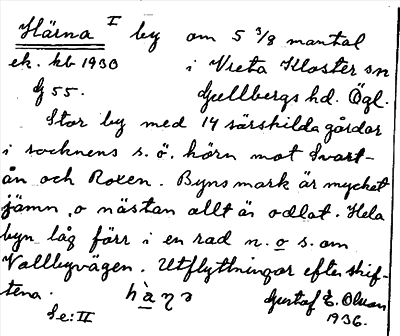 Härna I by om 5 3/8 mantal
ek. kb 1930 i Vreta Kloster sn
G 55. Gullbergs hd. Ögl.
Stor by med 14 särskilda gårdar
i socknens s. ö. hörn mot Svart-
ån och Roxen. Byns mark är mycket
jämn o nästan allt är odlat. Hela
byn låg förr i en rad n. o s. om
Vallbyvägen. Utflyttningar efter skif-
tena. Gustaf E. Olsson
Se: II 1936.